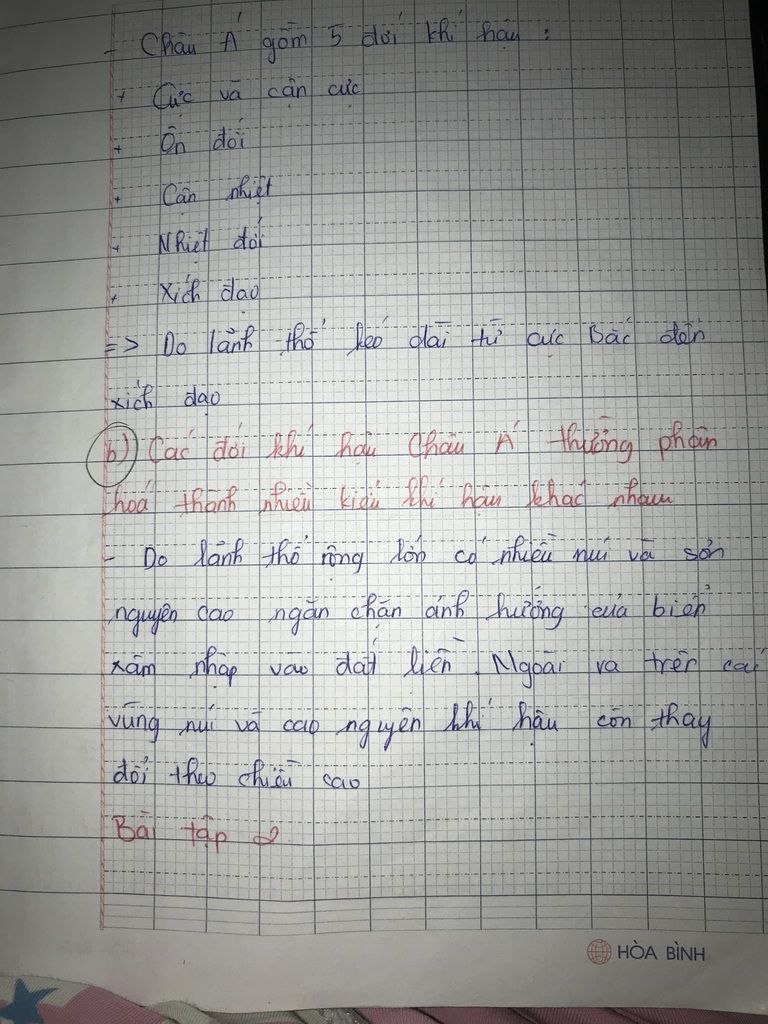 - Châu Á gồm 5 đới khí hậu :
+ Cực và cận cực
+ Ôn đới
+ Cận nhiệt
+ Nhiệt đới
+ Xích đạo
=> Do lãnh thổ kéo dài từ cực Bắc đến
xích đạo
b) Các đới khí hậu Châu Á thường phân
hoá thành nhiều kiểu khí hậu khác nhau
- Do lãnh thổ rộng lớn có nhiều núi và sơn
nguyên cao ngăn chặn ảnh hưởng của biển
xâm nhập vào đất liền. Ngoài ra trên các
vùng núi và cao nguyên khí hậu còn thay
đổi theo chiều cao
Bài tập 2
HÒA BÌNH